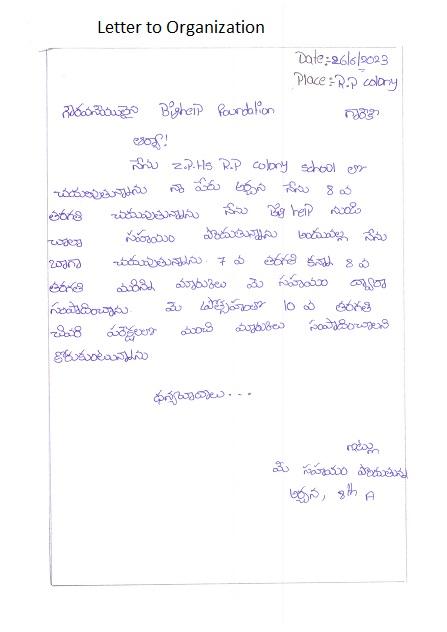 Letter to Organization
Date:-26/6/2023
Place:-R.P colony
గౌరవనీయులైన Bighelp Foundation గారికి
ఆర్యా!
నేను Z.P.Hs R.P colony school లో
చదువుతున్నాను నా పేరు అర్చన నేను 8 వ
తరగతి చదువుతున్నాను నేను Big help నుండి
చాలా సహాయం పొందుతున్నాను అందువల్ల నేను
బాగా చదువుతున్నాను. 7 వ తరగతి కన్నా 8 వ
తరగతి మార్కులు మీ సహాయం ద్వారా
సంపాదించాను. మీ ప్రోత్సాహంతో 10 వ తరగతి
చివరి పరీక్షలలో మంచి మార్కులు సంపాదించాలని
కోరుకుంటున్నాను
ధన్యవాదాలు...
ఇట్లు
మీ సహాయం పొందుతున్న
అర్చన, 8th A